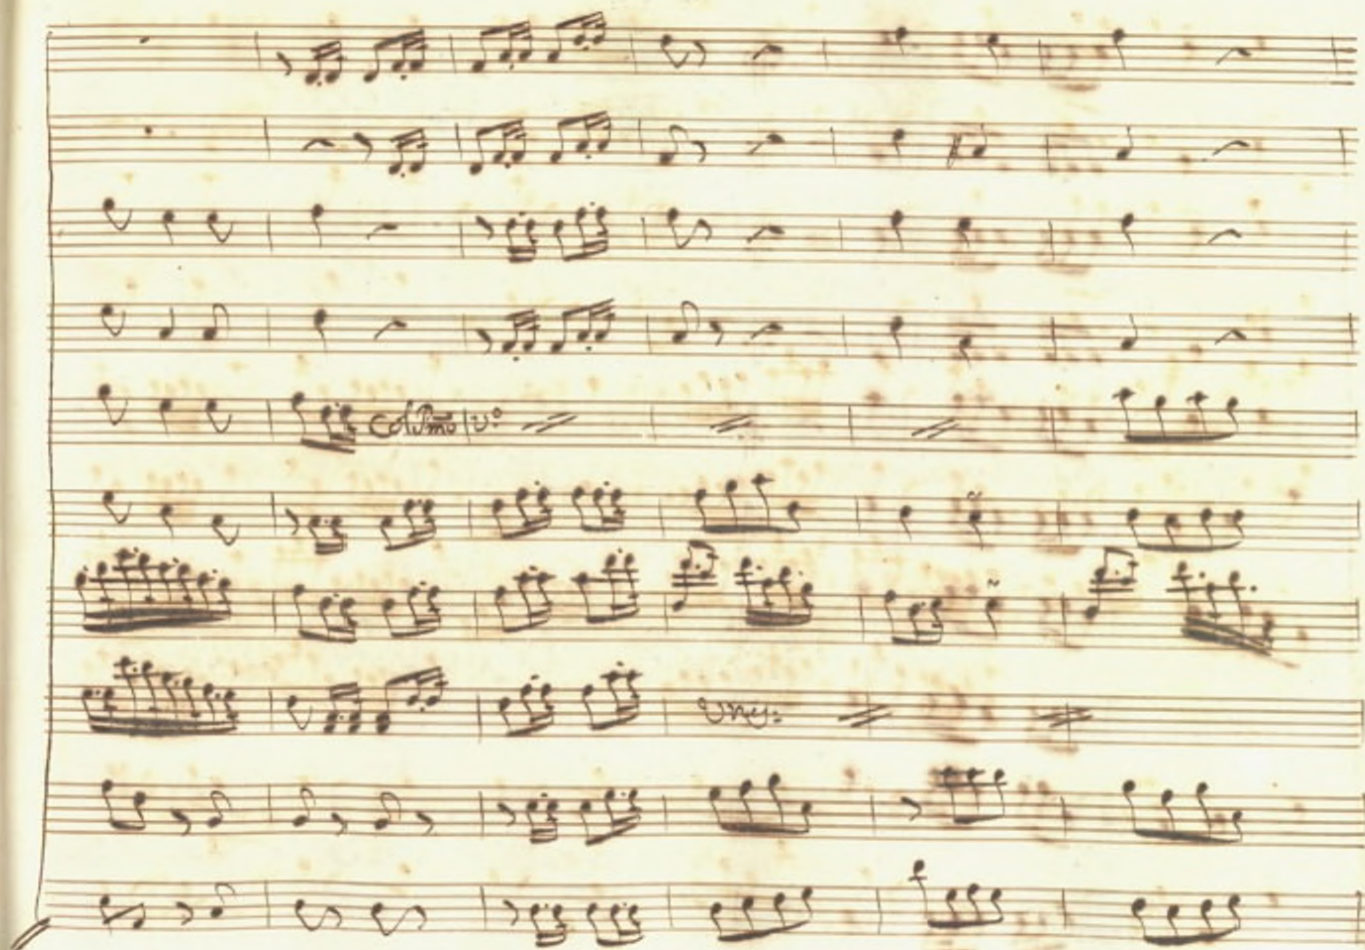 Col Pmo vo
unis: